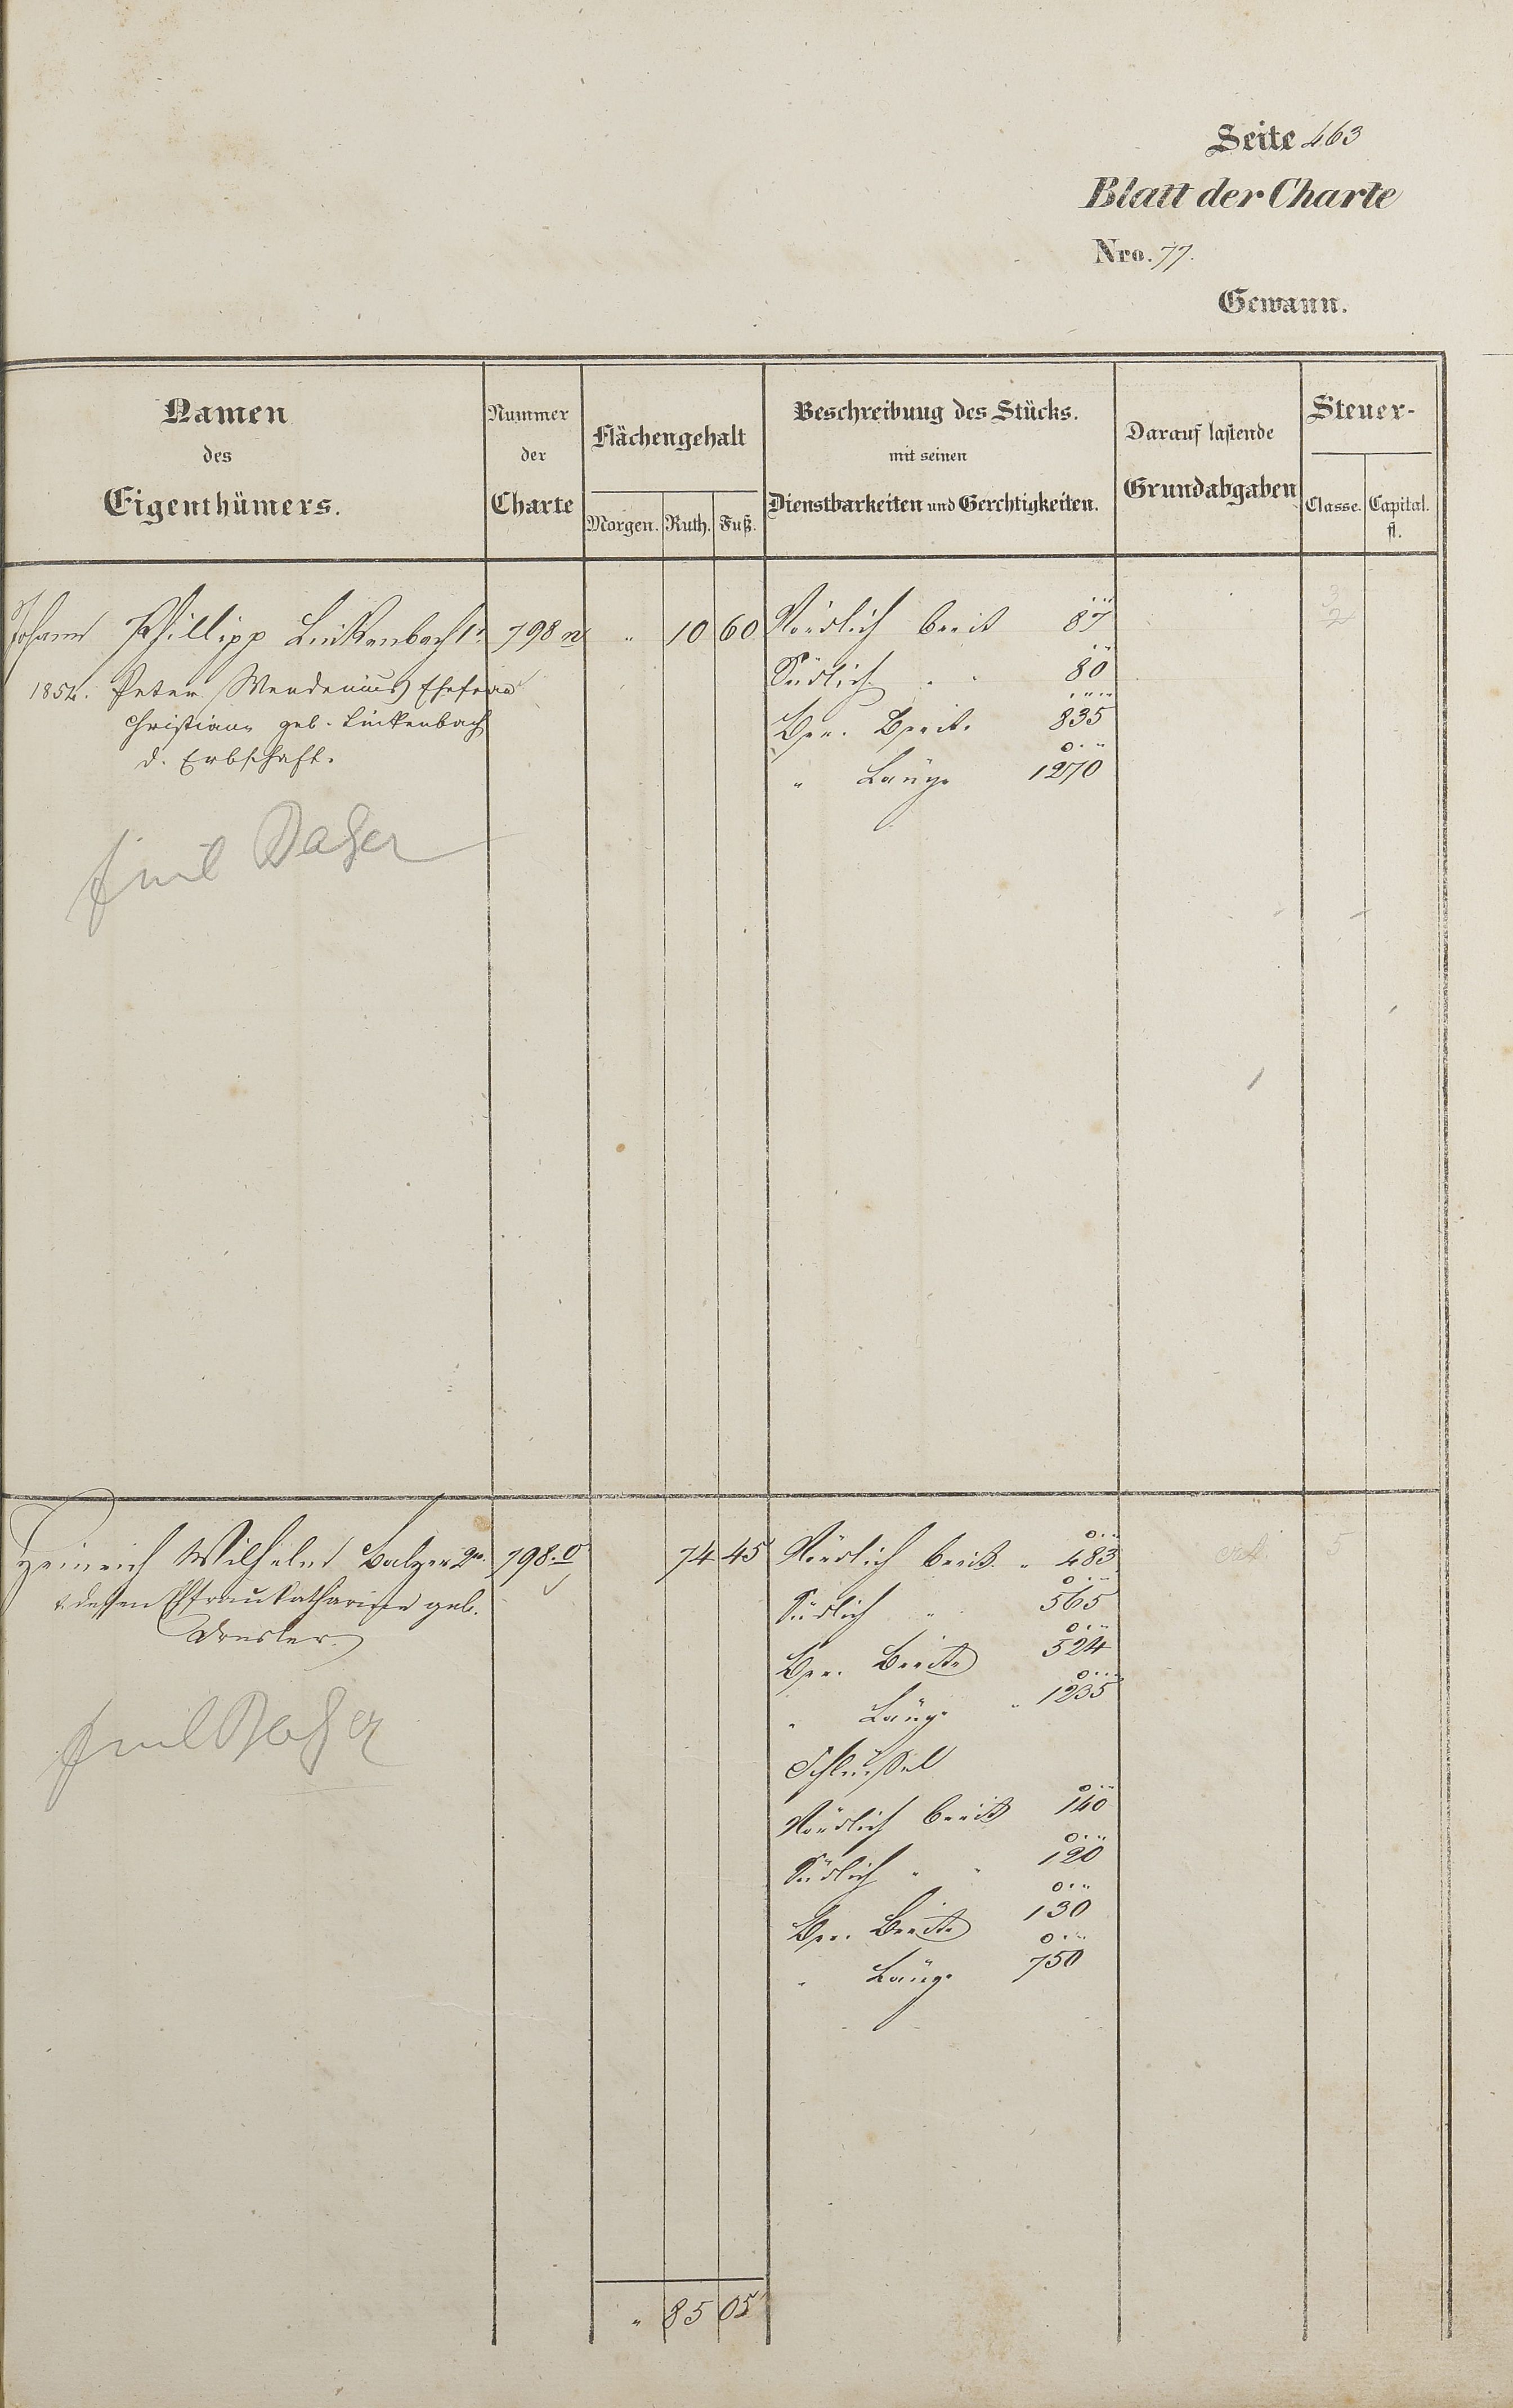 Seite 463
Blatt der Charte
Nro. 77.
Gewann.
Namen des Eigenthümers.
Nummer der Charte
Flächengehalt
Morgen. Ruth. Fuß.
Beschreibung des Stücks.
mit seinen
Dienstbarkeiten und Gerchtigkeiten.
Darauf lastende
Grundabgaben
Steuer-
Classe. Capital.
fl.
Johann Phillipp Linkenbach 1r 798 n " 10 60 Nördlich breit 87
Südlich " " 80
1852. Peter Ehefrau
Ber. Breite 835
Christiane geb. Linkenbach
d. Erbschaft.
" Länge 1270
Emil
Heinrich Wilhelm Balzer 2r. 798. o 74 45 Nördlich breit " 483
u. dessen Ehefrau Katharine geb.
Südlich " 565
Dresler
Ber. Breite 524
" Länge " 1235
Emil
Schlüssel
Nördlich breit 140
Südlich " " 120
Ber. Breite 130
" Länge 750
" 85 05